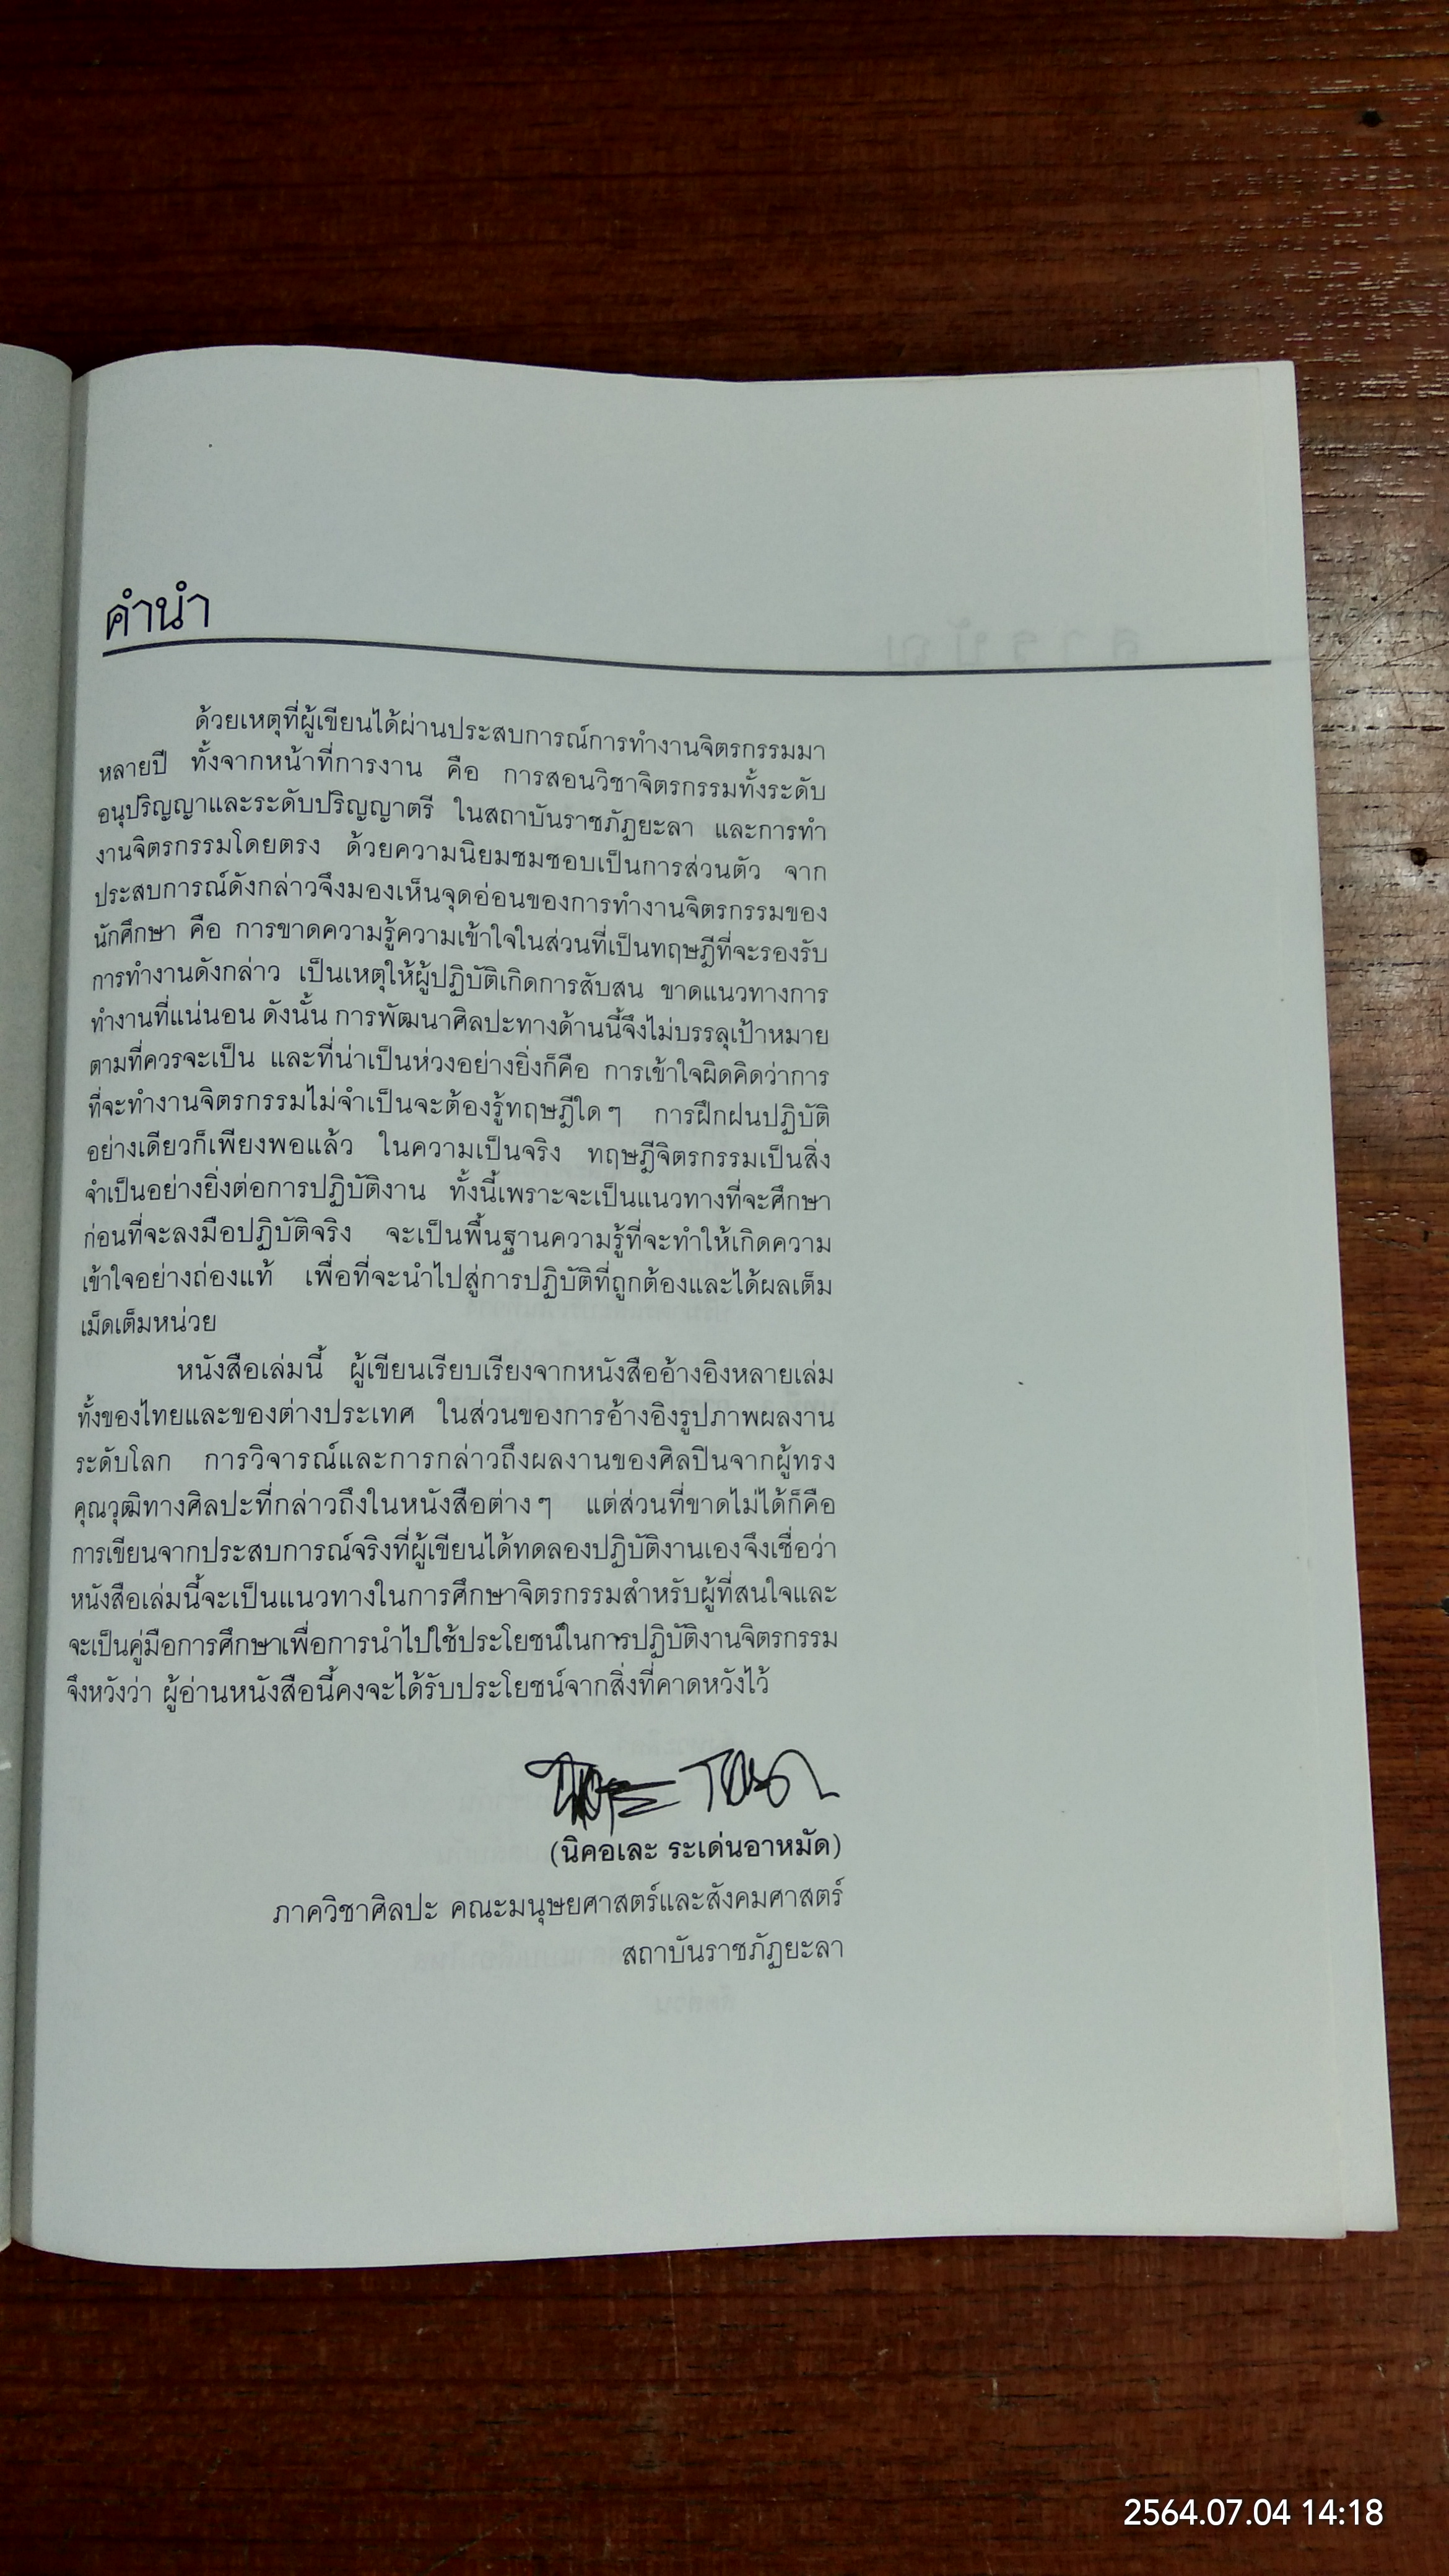 คำนำ
ด้วยเหตุที่ผู้เขียนได้ผ่านประสบการณ์การทำงานจิตรกรรมมา
หลายปี ทั้งจากหน้าที่การงาน คือ การสอนวิชาจิตรกรรมทั้งระดับ
อนุปริญญาและระดับปริญญาตรี ในสถาบันราชภัฏยะลา และการทำ
งานจิตรกรรมโดยตรง ด้วยความนิยมชมชอบเป็นการส่วนตัว จาก
ประสบการณ์ดังกล่าวจึงมองเห็นจุดอ่อนของการทำงานจิตรกรรมของ
นักศึกษา คือ การขาดความรู้ความเข้าใจในส่วนที่เป็นทฤษฎีที่จะรองรับ
การทำงานดังกล่าว เป็นเหตุให้ผู้ปฏิบัติเกิดการสับสน ขาดแนวทางการ
ทำงานที่แน่นอน ดังนั้น การพัฒนาศิลปะทางด้านนี้จึงไม่บรรลุเป้าหมาย
ตามที่ควรจะเป็น และที่น่าเป็นห่วงอย่างยิ่งก็คือ การเข้าใจผิดคิดว่าการ
ที่จะทำงานจิตรกรรมไม่จำเป็นจะต้องรู้ทฤษฎีใด ๆ การฝึกฝนปฏิบัติ
อย่างเดียวก็เพียงพอแล้ว ในความเป็นจริง ทฤษฎีจิตรกรรมเป็นสิ่ง
จำเป็นอย่างยิ่งต่อการปฏิบัติงาน ทั้งนี้เพราะจะเป็นแนวทางที่จะศึกษา
ก่อนที่จะลงมือปฏิบัติจริง จะเป็นพื้นฐานความรู้ที่จะทำให้เกิดความ
เข้าใจอย่างถ่องแท้ เพื่อที่จะนำไปสู่การปฏิบัติที่ถูกต้องและได้ผลเต็ม
เม็ดเต็มหน่วย
หนังสือเล่มนี้ ผู้เขียนเรียบเรียงจากหนังสืออ้างอิงหลายเล่ม
ทั้งของไทยและของต่างประเทศ ในส่วนของการอ้างอิงรูปภาพผลงาน
ระดับโลก การวิจารณ์และการกล่าวถึงผลงานของศิลปินจากผู้ทรง
คุณวุฒิทางศิลปะที่กล่าวถึงในหนังสือต่าง ๆ แต่ส่วนที่ขาดไม่ได้ก็คือ
การเขียนจากประสบการณ์จริงที่ผู้เขียนได้ทดลองปฏิบัติงานเองจึงเชื่อว่า
หนังสือเล่มนี้จะเป็นแนวทางในการศึกษาจิตรกรรมสำหรับผู้ที่สนใจและ
จะเป็นคู่มือการศึกษาเพื่อการนำไปใช้ประโยชน์ในการปฏิบัติงานจิตรกรรม
จึงหวังว่า ผู้อ่านหนังสือนี้คงจะได้รับประโยชน์จากสิ่งที่คาดหวังไว้
(นิคอเละ ระเด่นอาหมัด)
ภาควิชาศิลปะ คณะมนุษยศาสตร์และสังคมศาสตร์
สถาบันราชภัฏยะลา
2564.07.04 14:18